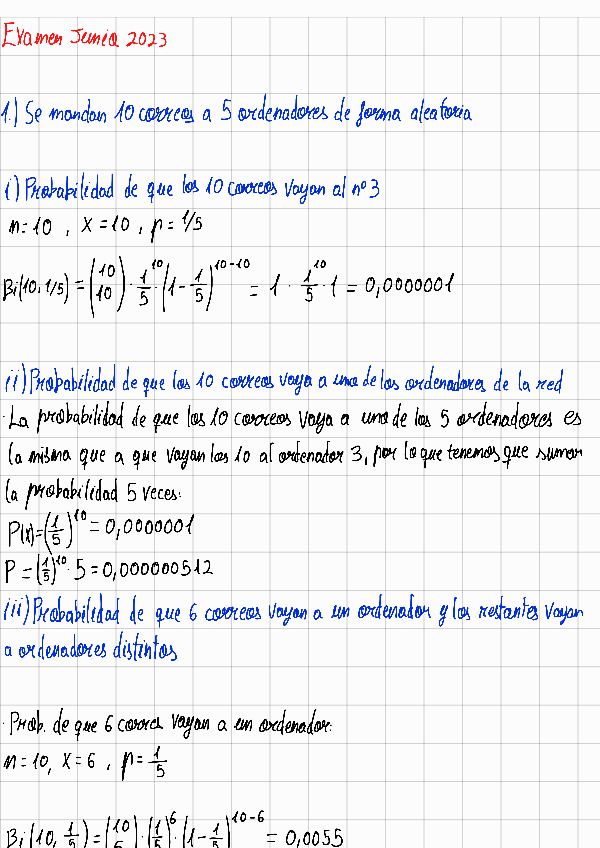 Examen Junio 2023
1.) Se mandan 10 correos a 5 ordenadores de forma aleatoria
i) Probabilidad de que los 10 correos vayan al nº3
n=10 , X=10 , p= 1/5
Bi(10, 1/5) = (10 10) · 1/5^10 · (1 - 1/5)^10-10 = 1 · 1/5^10 · 1 = 0,0000001
ii) Probabilidad de que los 10 correos vaya a uno de los ordenadores de la red
· La probabilidad de que los 10 correos vaya a uno de los 5 ordenadores es
la misma que a que vayan los 10 al ordenador 3, por lo que tenemos que sumar
la probabilidad 5 veces:
P(x)=(1/5)^10 = 0,0000001
P = (1/5)^10 · 5 = 0,000000512
iii) Probabilidad de que 6 correos vayan a un ordenador y los restantes vayan
a ordenadores distintos
· Prob. de que 6 correos vayan a un ordenador:
n=10, X=6 , p= 1/5
Bi(10, 1/5) = (10 6) · (1/5)^6 · (1 - 1/5)^10-6 = 0,0055